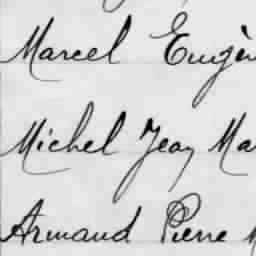 Marcel Eugèn
Michel Jean Ma
Armand Pierre M